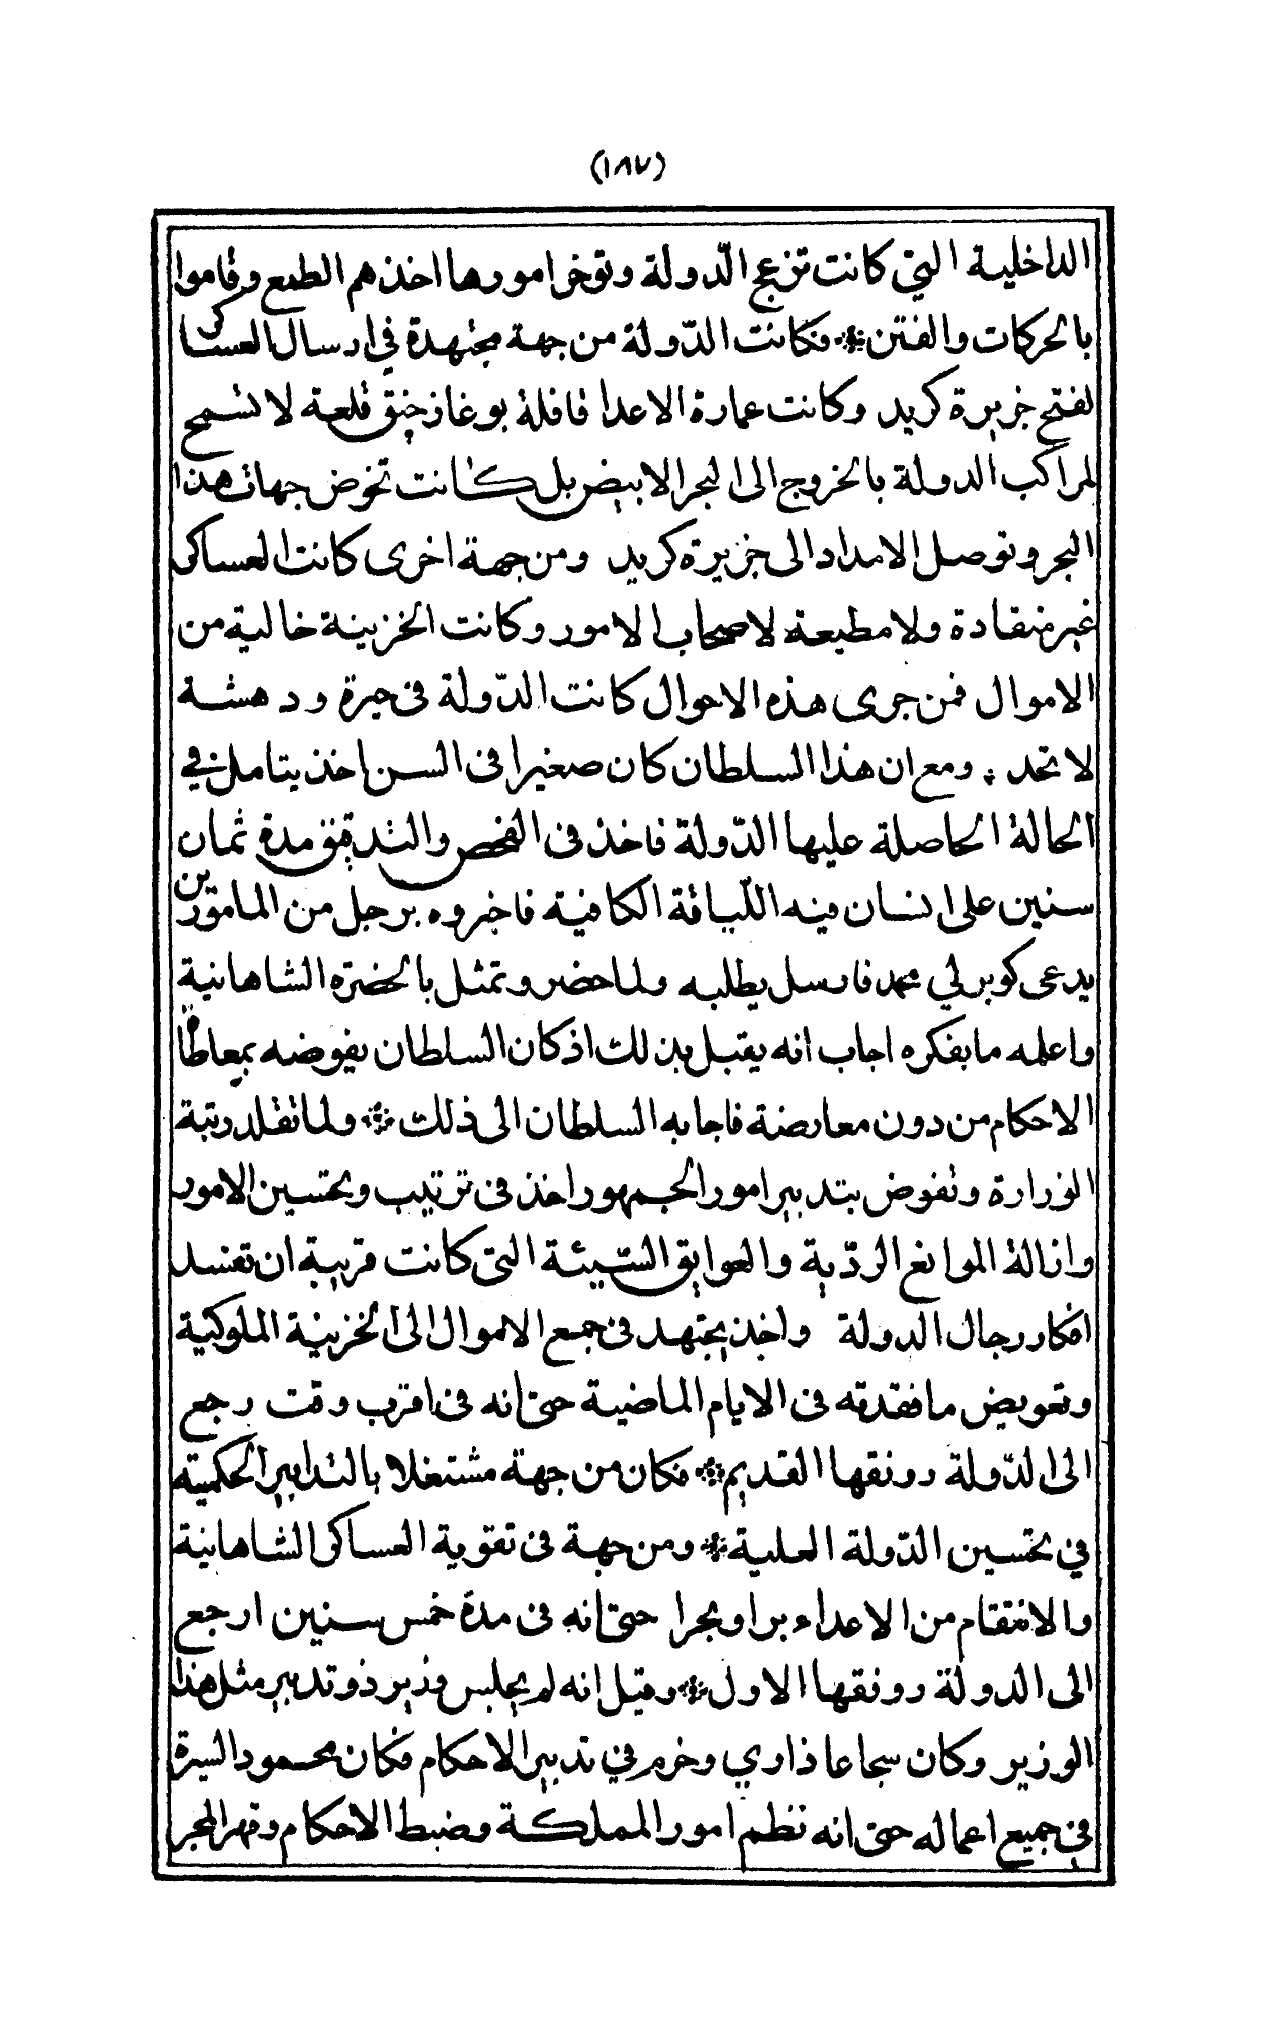 (١٨٧)
الداخلية التي كانت تزعج الدّولة وتوخر امورها اخذهم الطمع وقاموا
بالحركات والفتن ※ فكانت الدّولة من جهة مجتهدة في ارسال العساكر
لفتح جزيرة كريد وكانت عمارة الاعدا قافلة بوغاز خنق قلعة لا تسمح
لمراكب الدولة بالخروج الى البحر الابيض بل كانت تخوض جهات هذا
البحر وتوصل الامداد الى جزيرة كريد ومن جهة اخرى كانت العساكر
غير منقادة ولا مطيعة لاصحاب الامور وكانت الخزينة خالية من
الاموال فمن جرى هذه الاحوال كانت الدّولة في حيرة ودهشة
لا تحد ※ ومع ان هذا السلطان كان صغيرا في السن اخذ يتامل في
الحالة الحاصلة عليها الدّولة فاخذ في الفحص والتدقيق مدة ثمان
سنين على انسان فيه اللّياقة الكافية فاخبروه برجل من المامورين
يدعى كوبرلي محمد فارسل يطلبه ولما حضر وتمثل بالحضرة الشاهانية
واعلمه ما بفكره اجاب انه يقبل بذلك اذ كان السلطان يفوضه بمعاطاة
الاحكام من دون معارضة فاجابه السلطان الى ذلك ※ ولما تقلد رتبة
الوزارة وتفوض بتدبير امور الجمهور اخذ في ترتيب وتحسين الامور
وازالة الموانع الردّية والعوايق السّيئة التي كانت قريبة ان تفسد
افكار رجال الدولة واخذ يجتهد في جمع الاموال الى الخزينة الملوكية
وتعويض ما فقدته في الايام الماضية حتى انه في اقرب وقت رجع
الى الدّولة رونقها القديم ※ فكان من جهة مشتغلا بالتدابير الحكمية
في تحسين الدّولة العلية ※ ومن جهة في تقوية العساكر الشاهانية
والانتقام من الاعداء برا وبحرا حتى انه في مدة خمس سنين ارجع
الى الدولة رونقها الاول ※ وقيل انه لم يجلس وزير ذو تدبير مثل هذا
الوزير وكان سجاعا ذا راي وحزم في تدبير الاحكام فكان محمود السيرة
في جميع اعماله حتى انه نظم امور المملكة وضبط الاحكام وقهر المجر